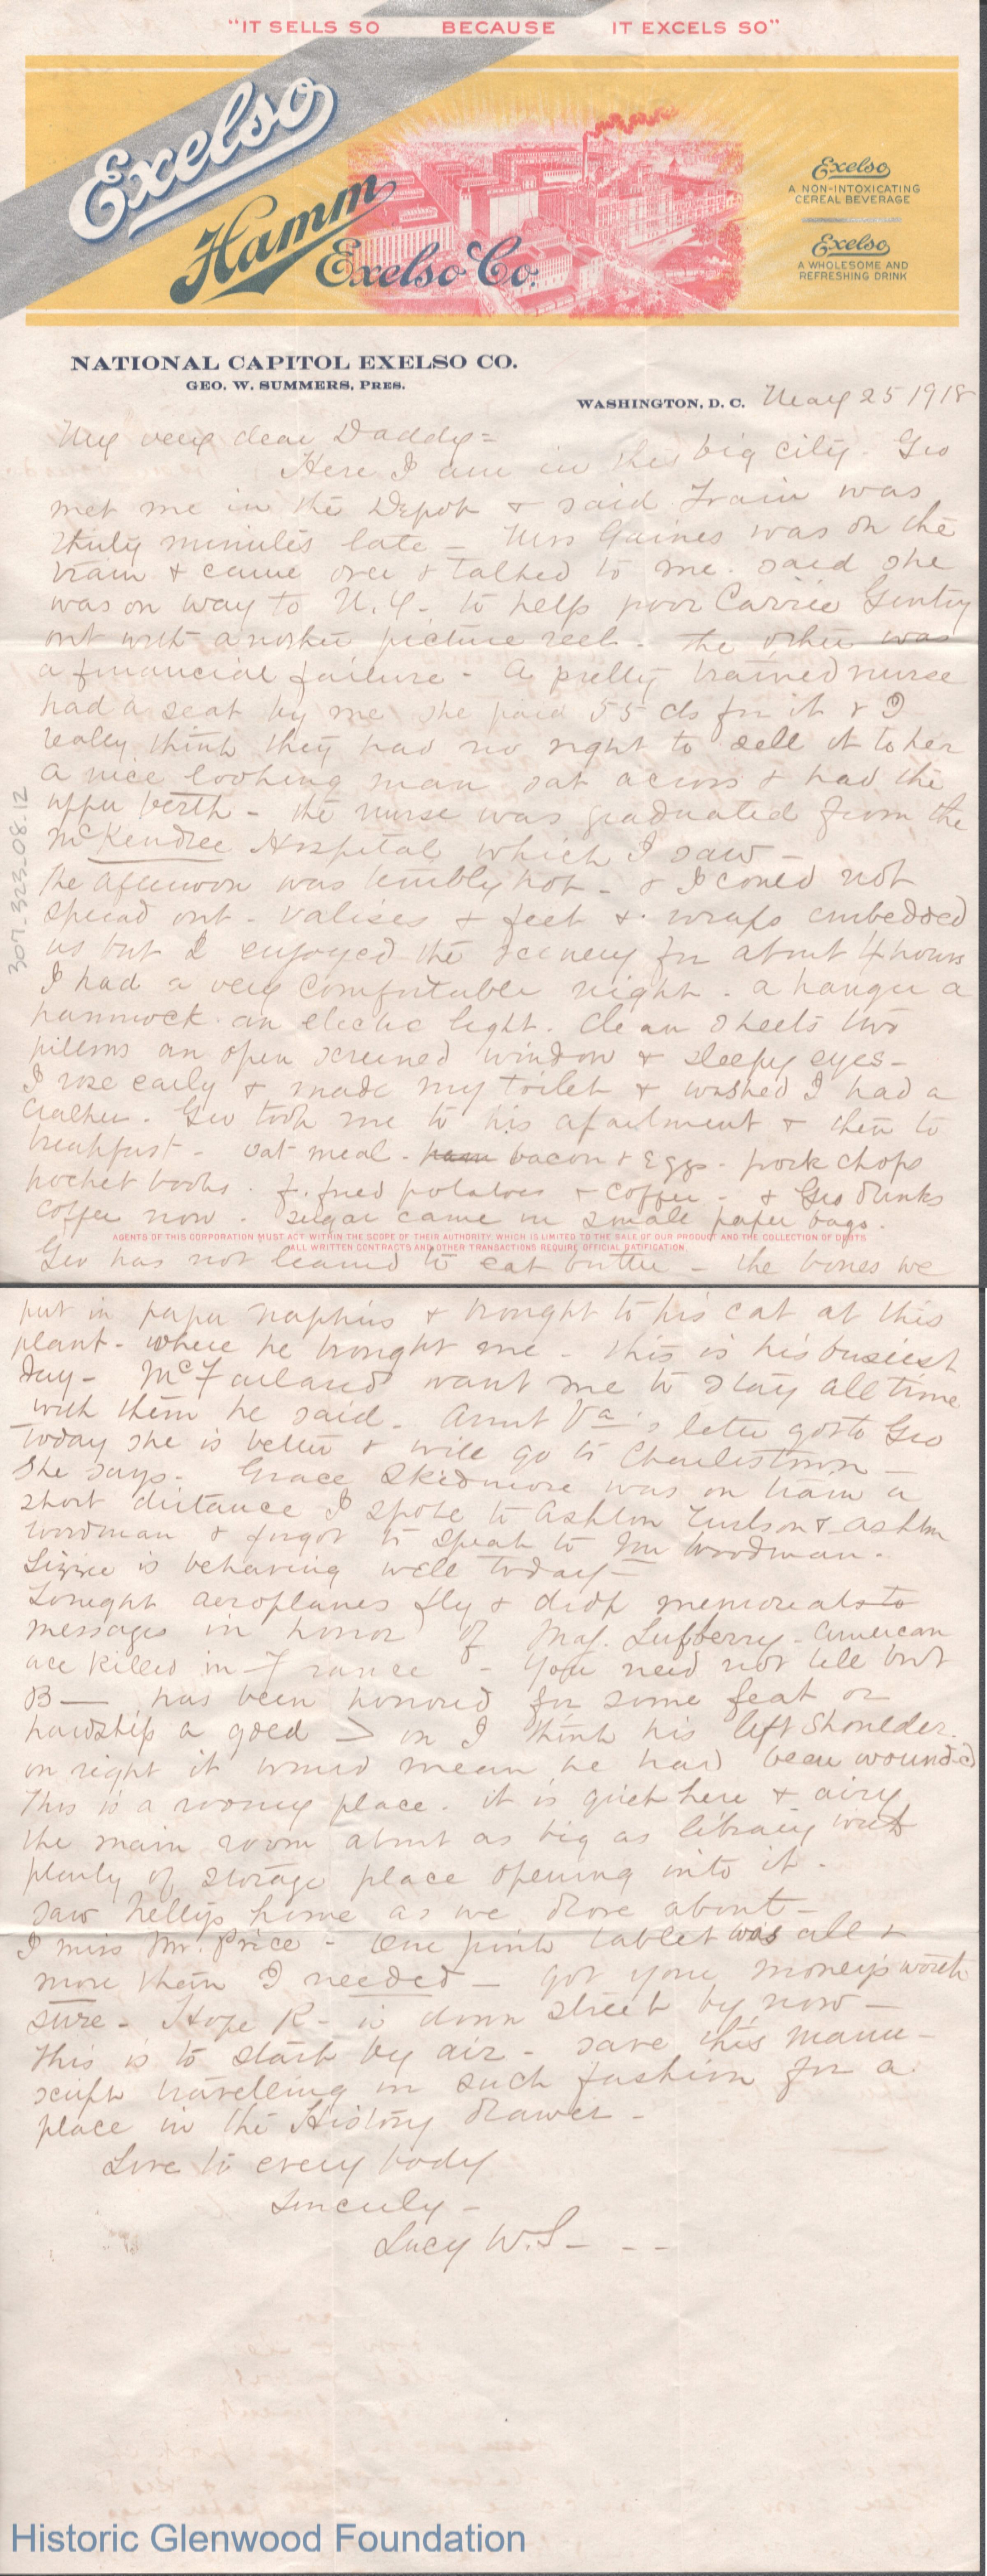 "IT SELLS SO BECAUSE IT EXCELS SO"
Exelso
Hamm
Exelso Co.
Exelso
A NON-INTOXICATING
CEREAL BEVERAGE
Exelso
A WHOLESOME AND
REFRESHING DRINK
NATIONAL CAPITOL EXELSO CO.
GEO. W. SUMMERS, PRES.
WASHINGTON, D. C. May 25 1918
My very dear Daddy=
Here I am in the big city. Geo
met me in the Depot & said Train was
thirty minutes late – Mrs Gaines was on the
train & came over & talked to me. said she
was on way to N.Y. to help poor Carrie Gentry
out with another picture reel – the other was
a financial failure – A pretty trained nurse
had a seat by me she paid 55 cts for it & I
really think they had no right to sell it to her
A nice looking man sat across & had the
upper berth – the nurse was graduated from the
McKendree Hospital which I saw –
the afternoon was terribly hot – & I could not
spread out – valises & feet & wraps embedded
us but I enjoyed the scenery for about 4 hours
I had a very comfortable night. a hanger a
hammock. an electric light. clean sheets two
pillows an open screened window & sleepy eyes –
I rose early & made my toilet & washed I had a
Geo took me to his apartment & then to
breakfast – oat meal – ham bacon & Eggs – pork chops
pocket books. f. fried potatoes & coffee – & Geo drinks
coffee now. sugar came in small paper bags.
AGENTS OF THIS CORPORATION MUST ACT WITHIN THE SCOPE OF THEIR AUTHORITY WHICH IS LIMITED TO THE SALE OF OUR PRODUCT AND THE COLLECTION OF DEBTS
ALL WRITTEN CONTRACTS AND OTHER TRANSACTIONS REQUIRE OFFICIAL RATIFICATION
Geo has not learned to eat butter – the bones we
307.323.08.12
put in paper napkins & brought to his cat at this
plant – where he brought me – this is his busiest
day – McFarlands want me to stay all time
with them he said – Aunt Va's letter got to Geo
today she is better & will go to Charlestown –
she says – Grace Skidmore was on train a
short distance I spoke to Ashton & Ashton
Woodman & forgot to speak to Mr Woodman.
Lizzie is behaving well today –
Tonight aeroplanes fly & drop memorials to
messages in honor of Maj. Lufberry – American
ace killed in France – You need not tell but
B— has been honored for some feat or
hardship a gold > on I think his left shoulder.
on right it would mean he had been wounded
This is a roomy place. it is quiet here & airy
the main room about as big as library with
plenty of storage place opening into it.
saw Nellys home as we drove about –
I miss Mr. Price – One pink tablet was all &
more than I needed – got your money's worth
sure – Hope R– is down street by now –
This is to start by air – save this manu–
script travelling in such fashion for a
place in the History drawer –
Love to every body
Sincerely –
Lucy W.S – – –
Historic Glenwood Foundation